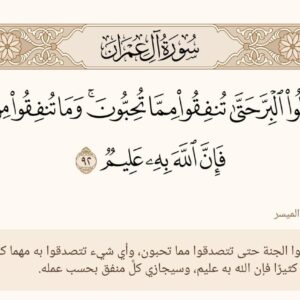 سُورَةُ آلِ عِمْرَان
ٱلۡبِرَّ حَتَّىٰ تُنفِقُواْ مِمَّا تُحِبُّونَۚ وَمَا تُنفِقُواْ
فَإِنَّ ٱللَّهَ بِهِۦ عَلِيمٞ ٩٢
الميسر
الجنة حتى تتصدقوا مما تحبون، وأي شيء تتصدقوا به مهما
كثيرًا فإن الله به عليم، وسيجازي كلَّ منفق بحسب عمله.